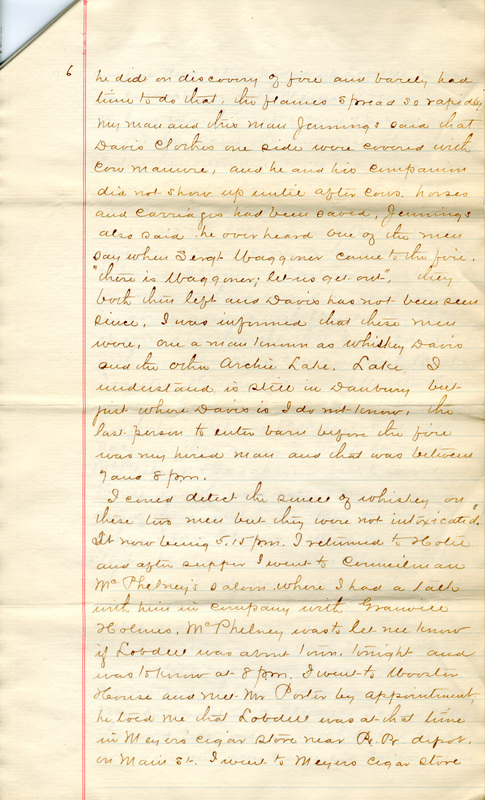 6
he did on discovery of fire and barely had
time to do that, the flames spread so rapidly
my man and this man Jennings said that
Davis Clothes one side were covered with
Cow Manure, and he and his companion
did not show up untie after Cows. horses
and Carriages had been saved, Jennings
also said he overheard one of the men
say when Sergt Waggoner came to the fire.
"there is Waggoner, let us get out", they
both then left and Davis has not been seen
since. I was informed that these men
were, one a man known as whiskey Davis
and the other Archie Lake. Lake, I
understand is still in Danbury but
just where Davis is I do not know, the
last person to enter barn before the fire
was my hired man and that was between
7 and 8 pm.
I could detect the smell of whiskey on
these two men but they were not intoxicated".
It now being 5.15 pm. I returned to Hotel
and after supper I went to Councilman
McPhelney's saloon where I had a talk
with him in company with Granville
Holmes. McPhelney was to let me know
if Lobdell was about town. tonight and
was to know at 8 pm. I went to Wooster
House and met Mr. Porter by appointment,
he told me that Lobdell was at that time
in Meyers cigar store near R. R. depot.
on Main St. I went to Meyers cigar store